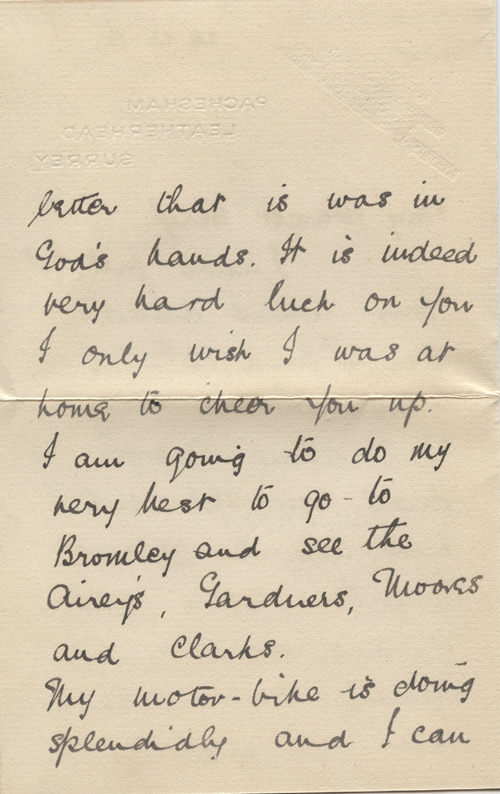 PACHESHAM
LEATHERHEAD.
SURREY
better that is was in
God's hands. It is indeed
very hard luck on you
I only wish I was at
home to cheer you up.
I am going to do my
very best to go to
Bromley and see the
Airey's, Gardners, Moores
and Clarks.
My motor-bike is doing
splendidly and I can